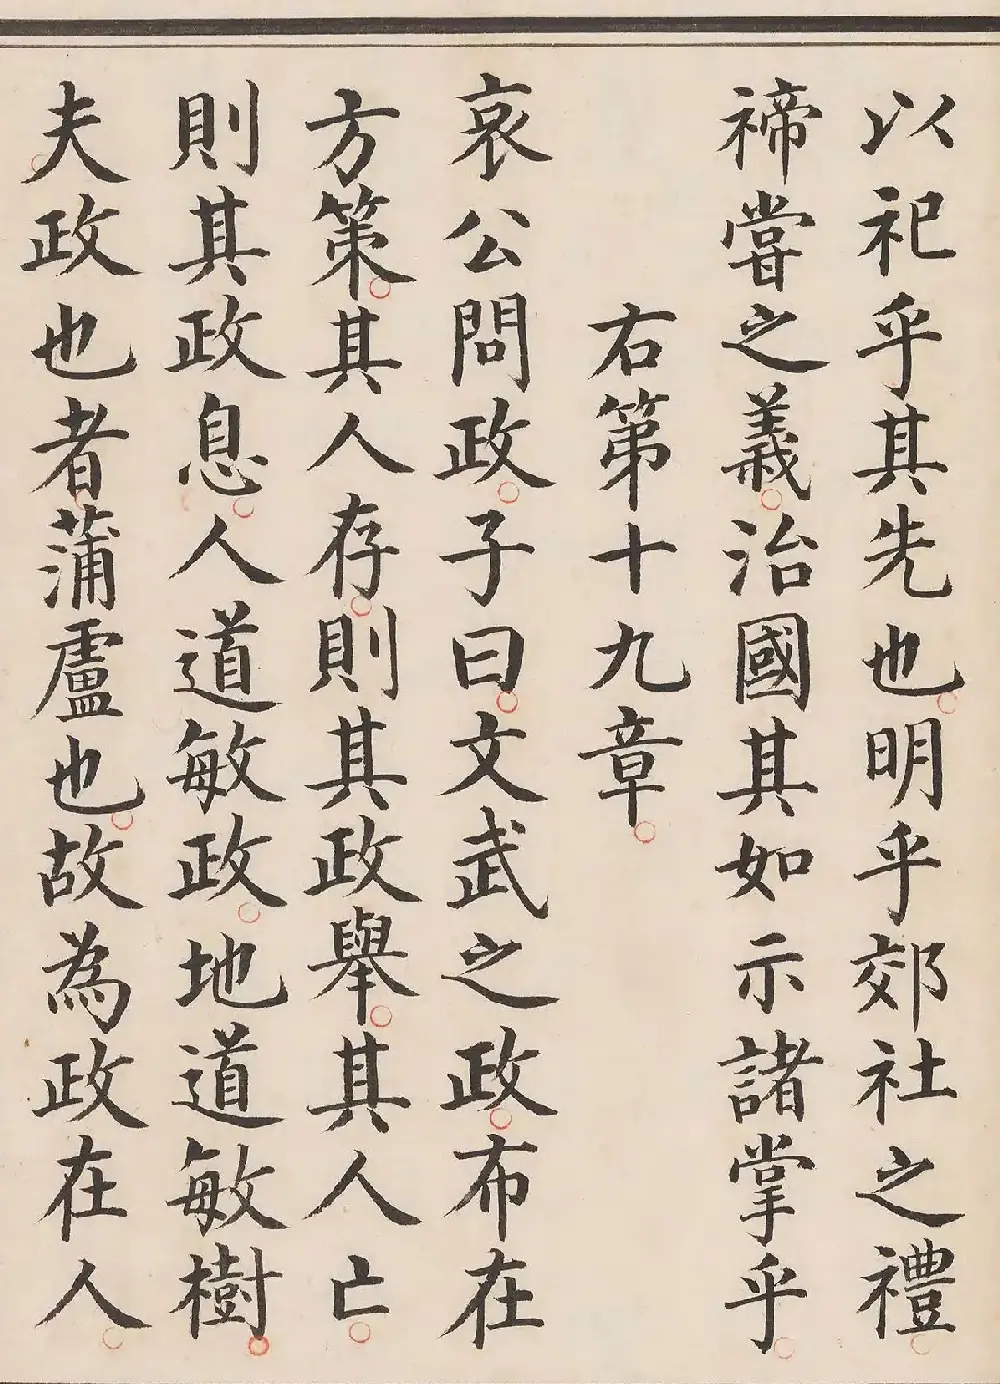 以祀乎其先也明乎郊社之禮
禘嘗之義治國其如示諸掌乎
右第十九章
哀公問政子曰文武之政布在
方策其人存則其政舉其人亡
則其政息人道敏政地道敏樹
夫政也者蒲盧也故為政在人